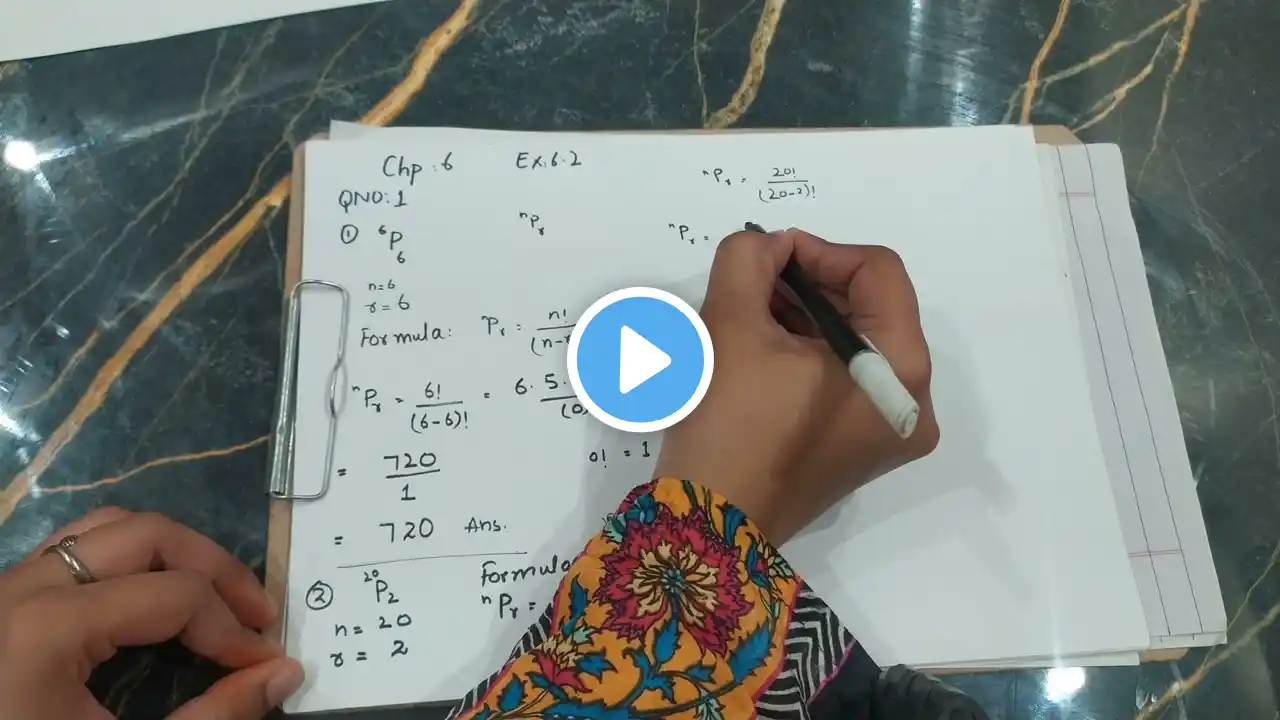 Chp: 6 Ex: 6.2
QNO: 1
① ⁶P₆
ⁿPᵣ
n=6
r=6
Formula: ⁿPᵣ = n!/(n-r
ⁿPᵣ = 6!/(6-6)! = 6·5·/(0)
= 720/1
0! = 1
= 720 Ans.
② ²⁰P₂
n= 20
r= 2
Formula
ⁿPᵣ =
ⁿPᵣ = 20!/(20-2)!
ⁿPᵣ =